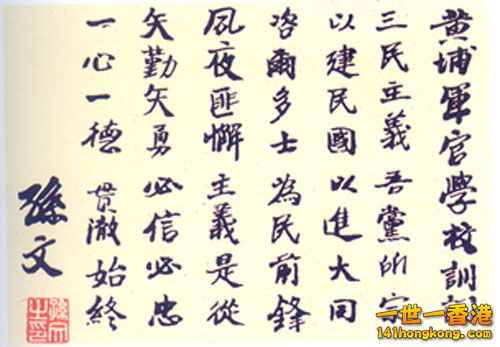 黃埔軍官學校訓詞
三民主義 吾黨所宗
以建民國 以進大同
咨爾多士 為民前鋒
夙夜匪懈 主義是從
矢勤矢勇 必信必忠
一心一德 貫澈始終
孫文
孫文之印
一世一香港
141hongkong.com